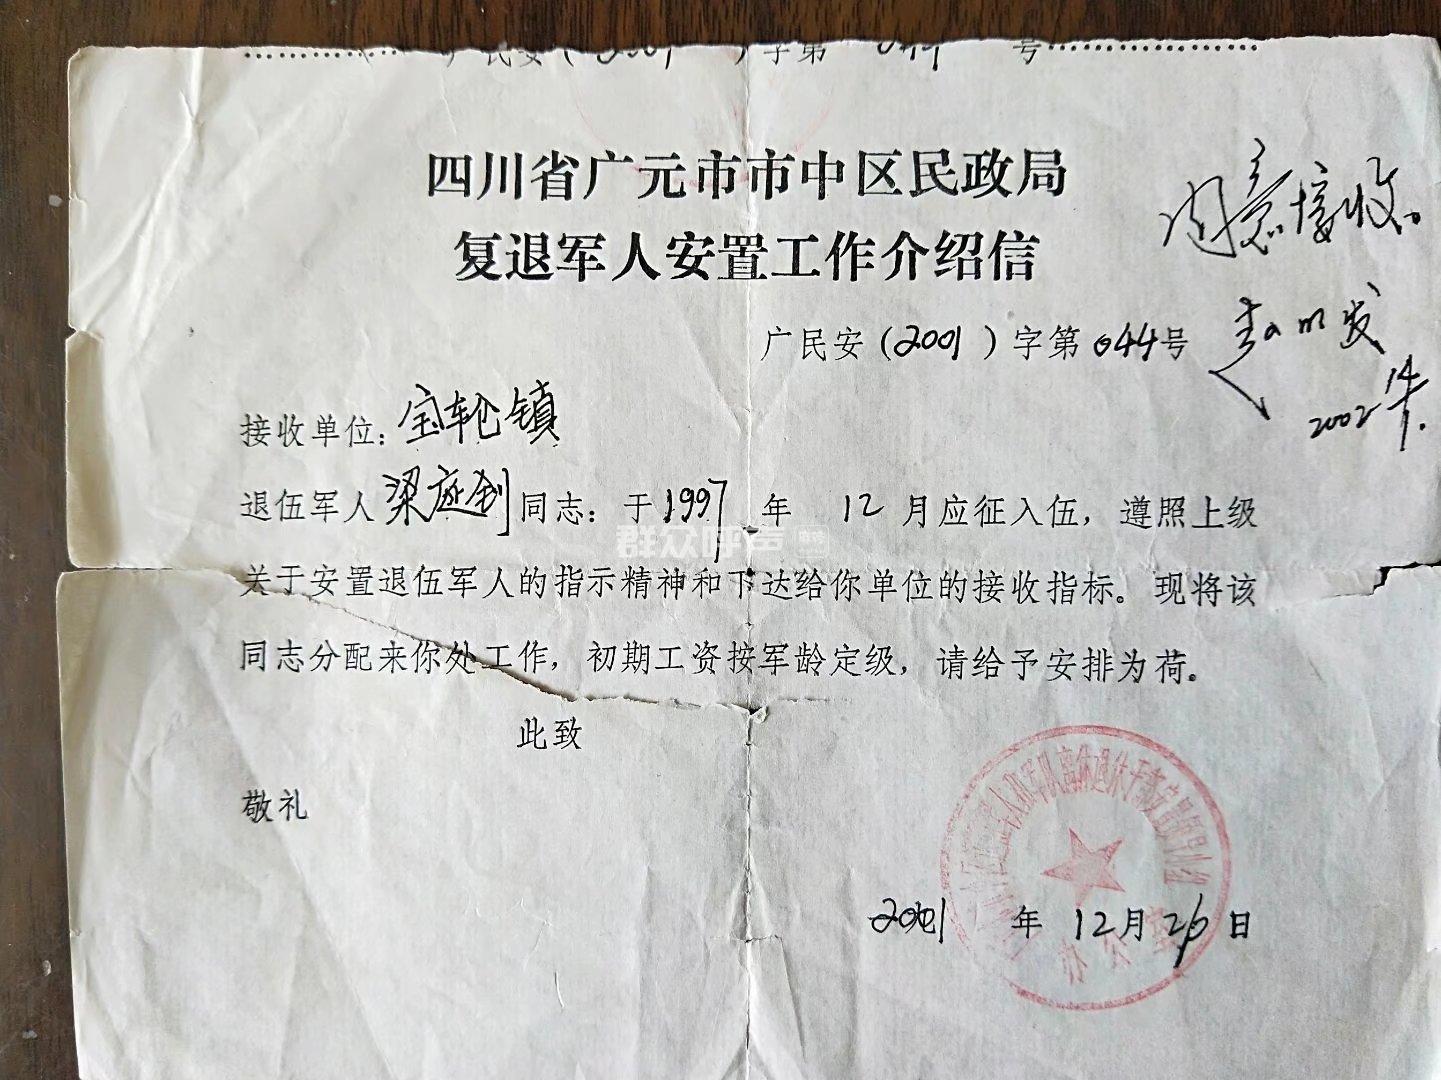 广民安（2001）字第044号
四川省广元市市中区民政局
复退军人安置工作介绍信
同意接收。
广民安（2001）字第044号
2002 14/1.
接收单位：宝轮镇
退伍军人梁庭剑同志：于1997年12月应征入伍，遵照上级
关于安置退伍军人的指示精神和下达给你单位的接收指标。现将该
同志分配来你处工作，初期工资按军龄定级，请给予安排为荷。
此致
敬礼
2001年12月26日
人民军队离休退休干部安置领导小组
办公室
群众呼声